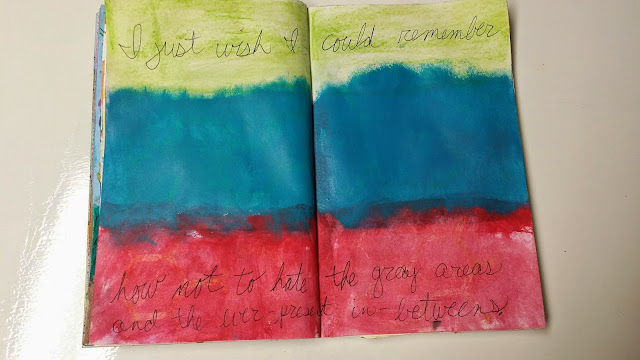 I just wish I could remember
how not to hate the gray areas
and the ever-present in-betweens.